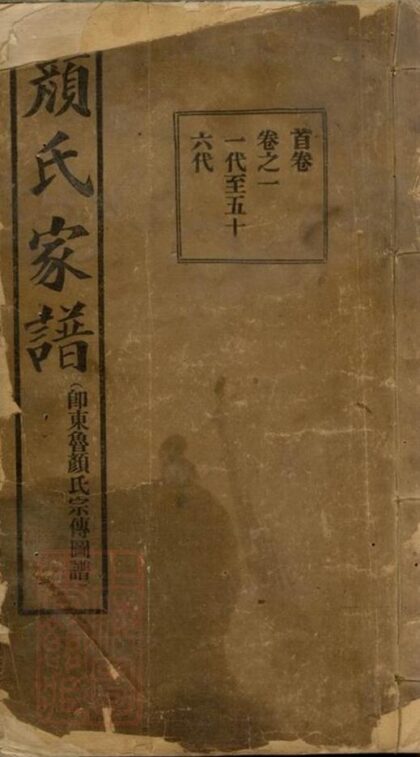 首卷
卷之一
一代至五十
六代
顏氏家譜
(卽東魯顏氏宗傳圖譜